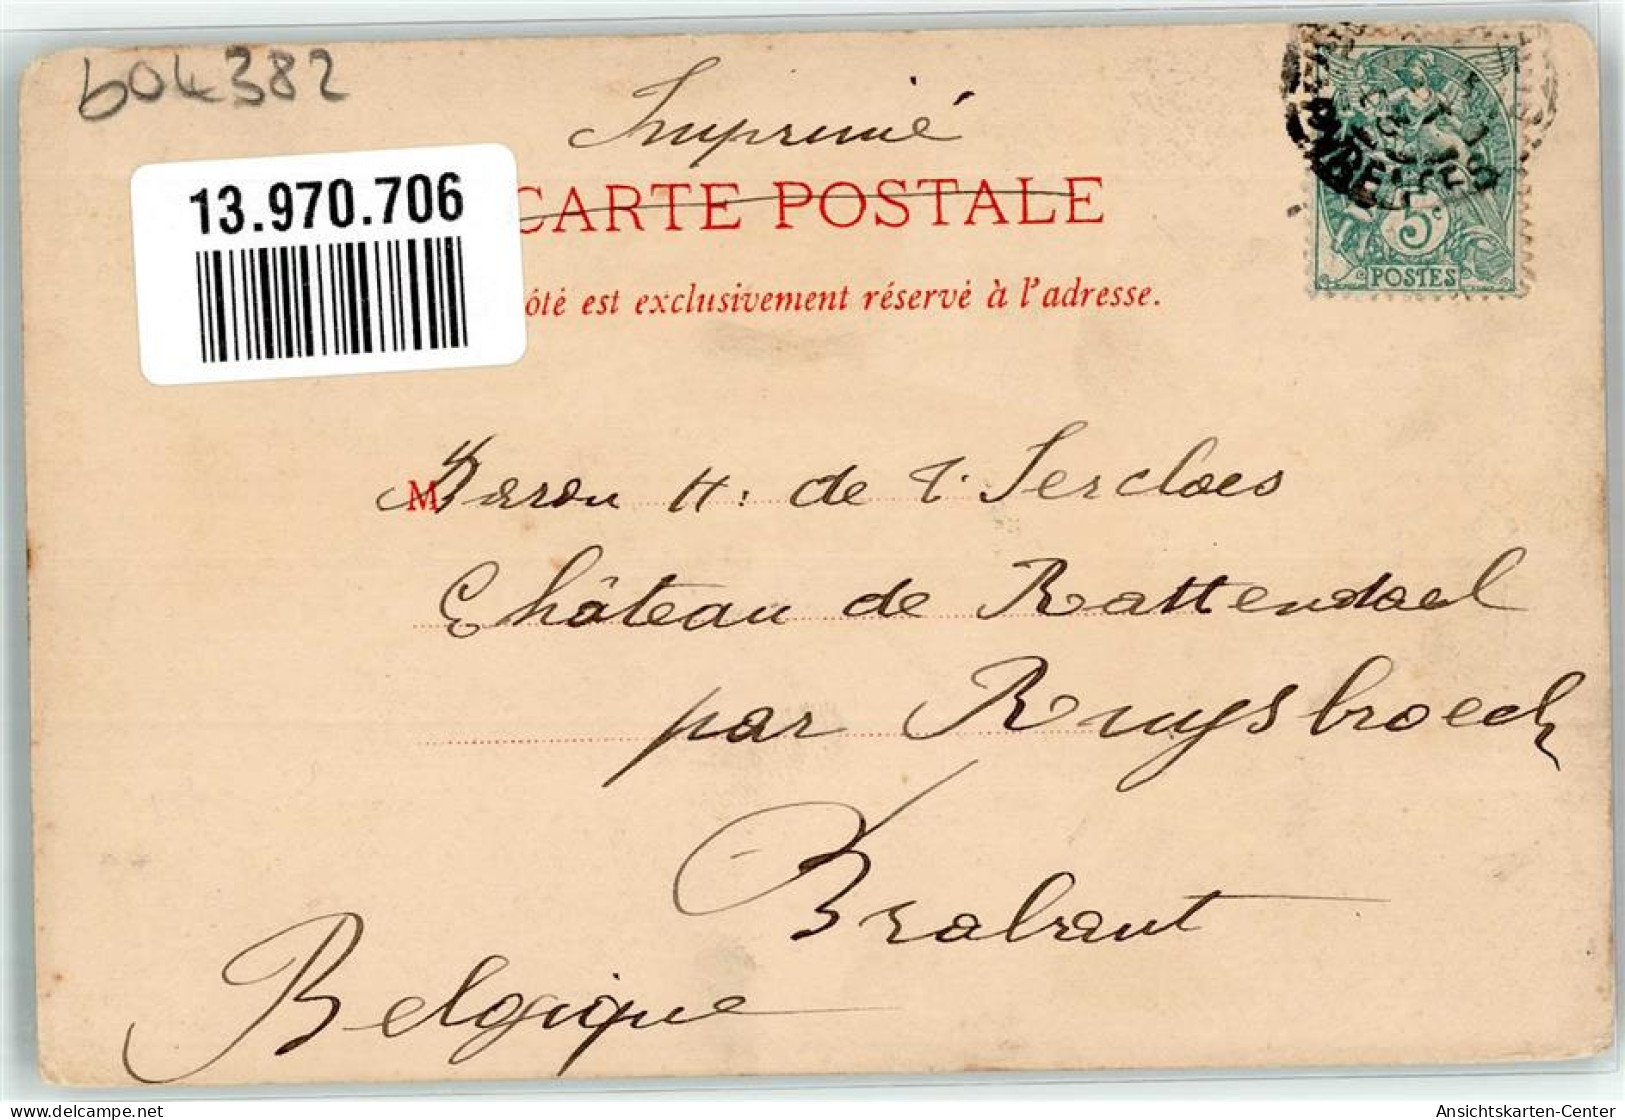 604382
Imprimé
13.970.706
CARTE POSTALE
ôté est exclusivement réservé à l'adresse.
M Baron H. de T'Serclaes
Château de Rattendael
par Ruysbroeck
Brabant
Belgique
5c
POSTES
Ansichtskarten-Center